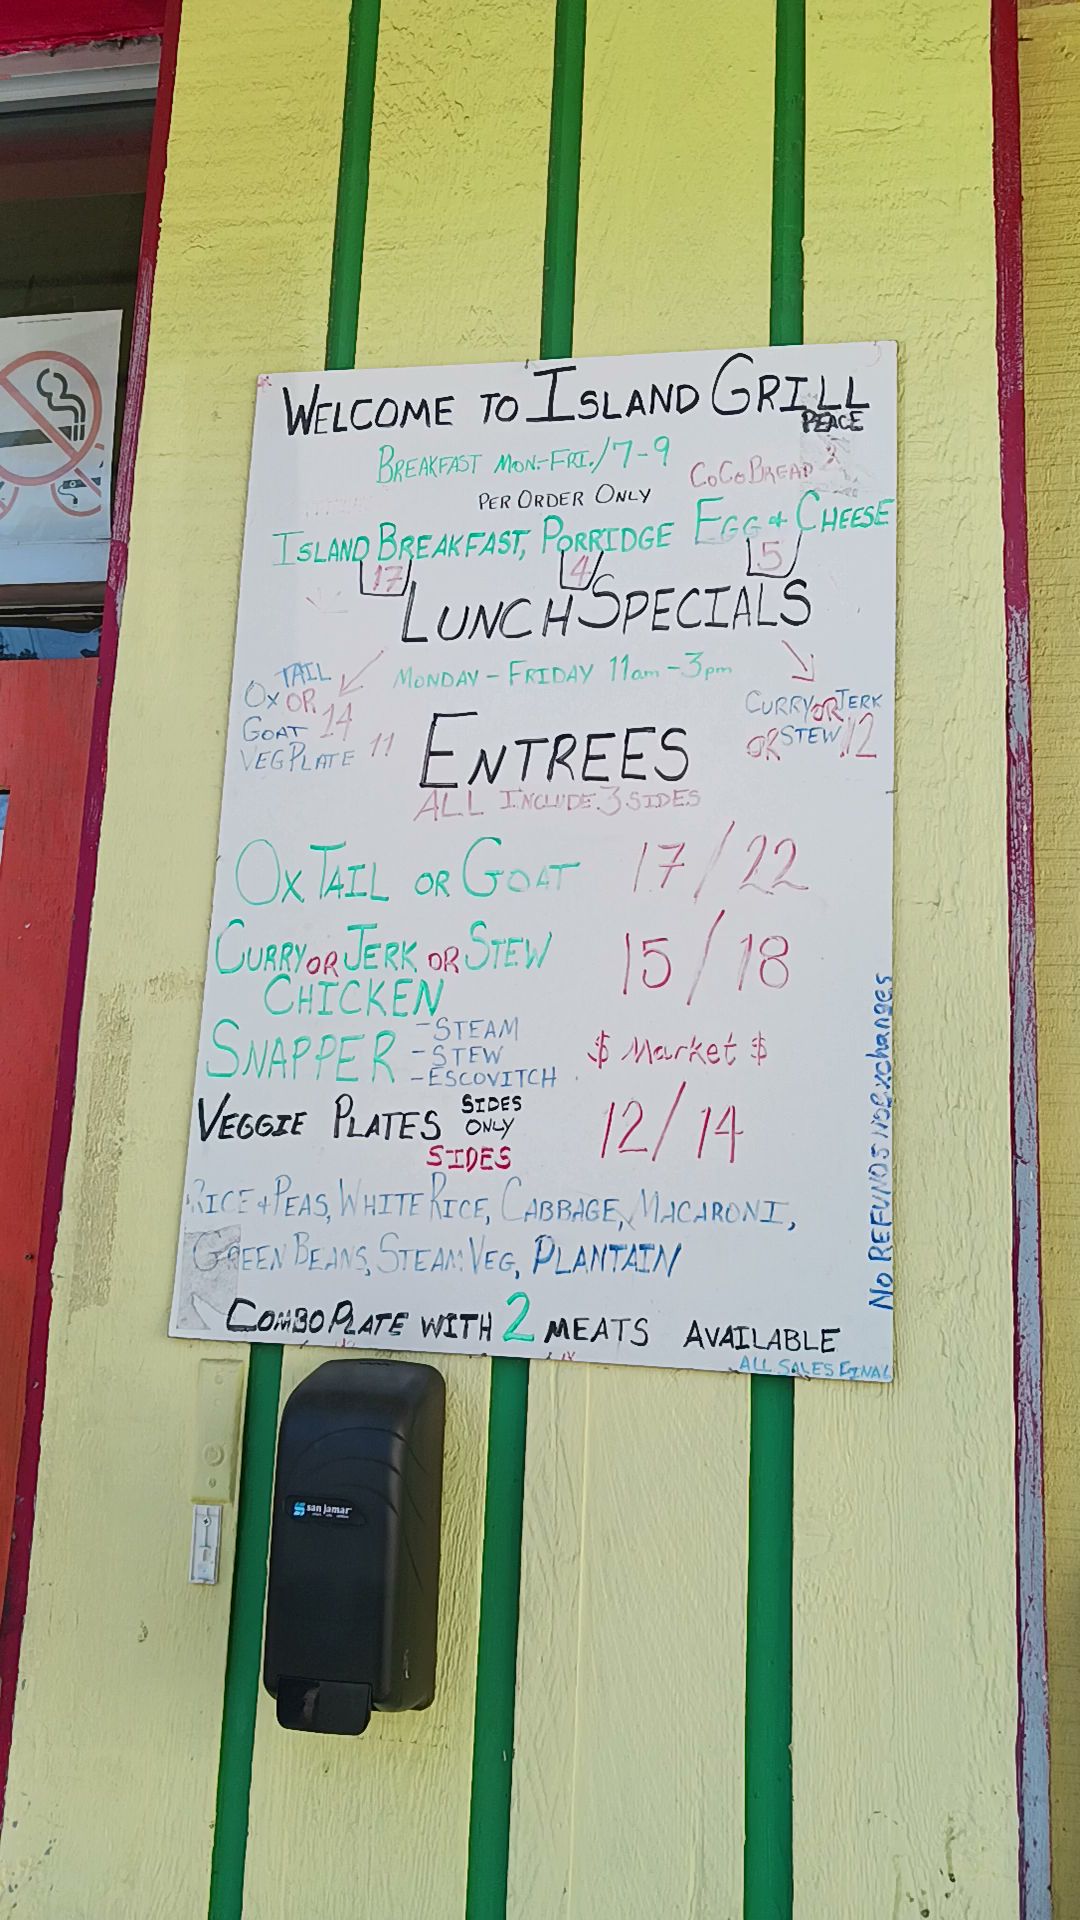 WELCOME TO ISLAND GRILL
PEACE
BREAKFAST MON.-FRI./7-9
COCOBREAD
PER ORDER ONLY
ISLAND BREAKFAST, PORRIDGE EGG + CHEESE
17 4 5
LUNCH SPECIALS
MONDAY - FRIDAY 11am - 3pm
OX TAIL OR
GOAT 14
VEG PLATE 11
CURRY OR JERK
OR STEW 12
ENTREES
ALL INCLUDE 3 SIDES
OX TAIL OR GOAT 17/22
CURRY OR JERK OR STEW 15/18
CHICKEN
SNAPPER $ Market $
- STEAM
- STEW
- ESCOVITCH
VEGGIE PLATES SIDES ONLY 12/14
SIDES
RICE + PEAS, WHITE RICE, CABBAGE, MACARONI,
GREEN BEANS, STEAM VEG, PLANTAIN
COMBO PLATE WITH 2 MEATS AVAILABLE
ALL SALES FINAL
No REFUNDS NO Exchanges
san jamar